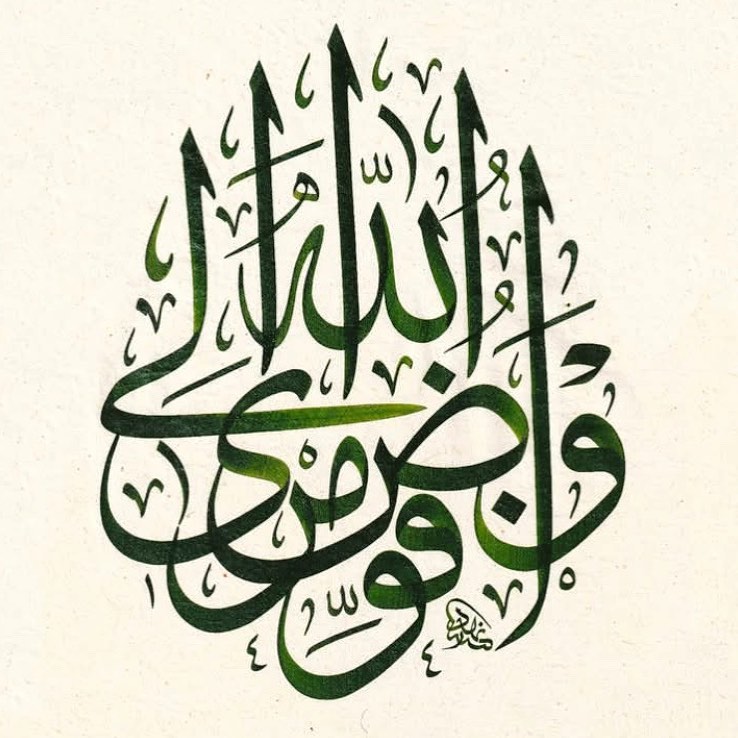 وَأُفَوِّضُ أَمْرِي إِلَى اللّٰهِ
١٤٤٥